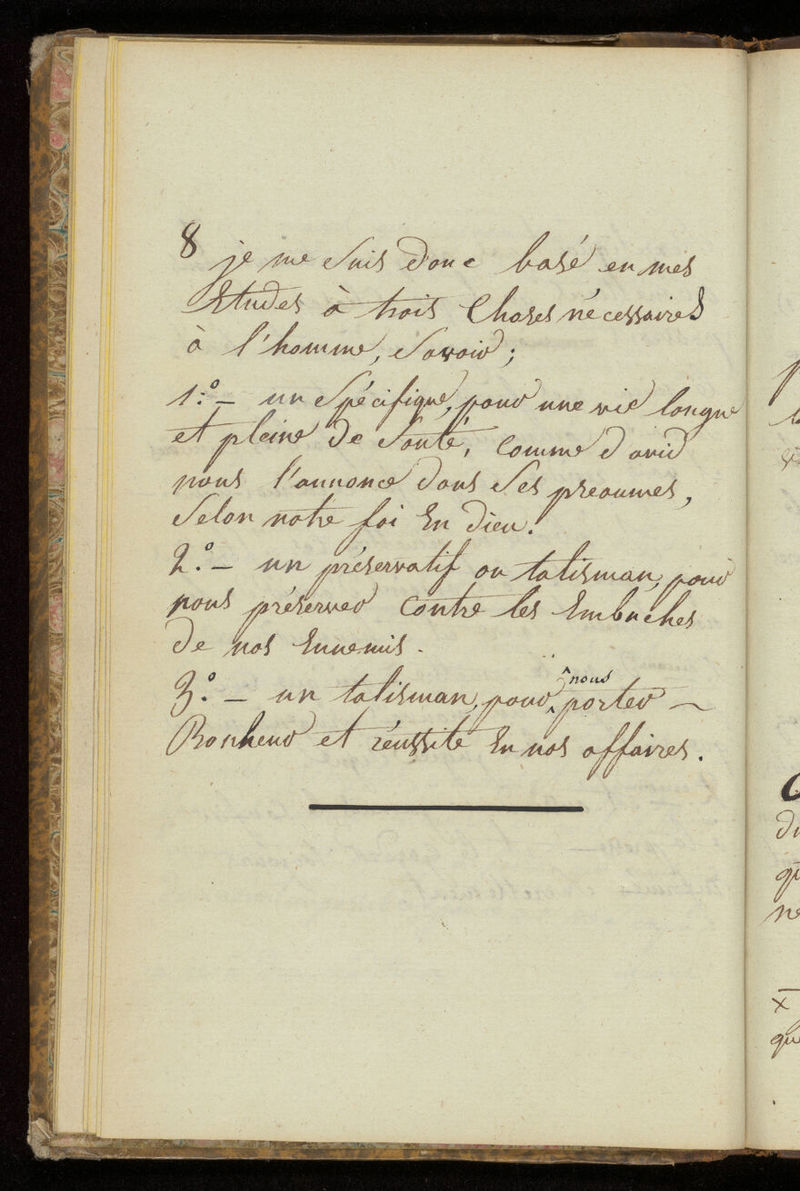 8
je me suis donc basé en mes
Etudes à trois Choses nécessaires
à l'homme, Savoir;
1:° — un Spécifique, pour une vie longue
et pleine de Santé, comme david
nous l'annonce dans Ses pseaumes,
Selon notre foi En dieu.
2.° — un préservatif ou talisman, pour
nous préserver contre les Embuches
de nos Ennemis.
3.° — un talisman, pour nous porter ~
Bonheur et réussite En nos affaires.